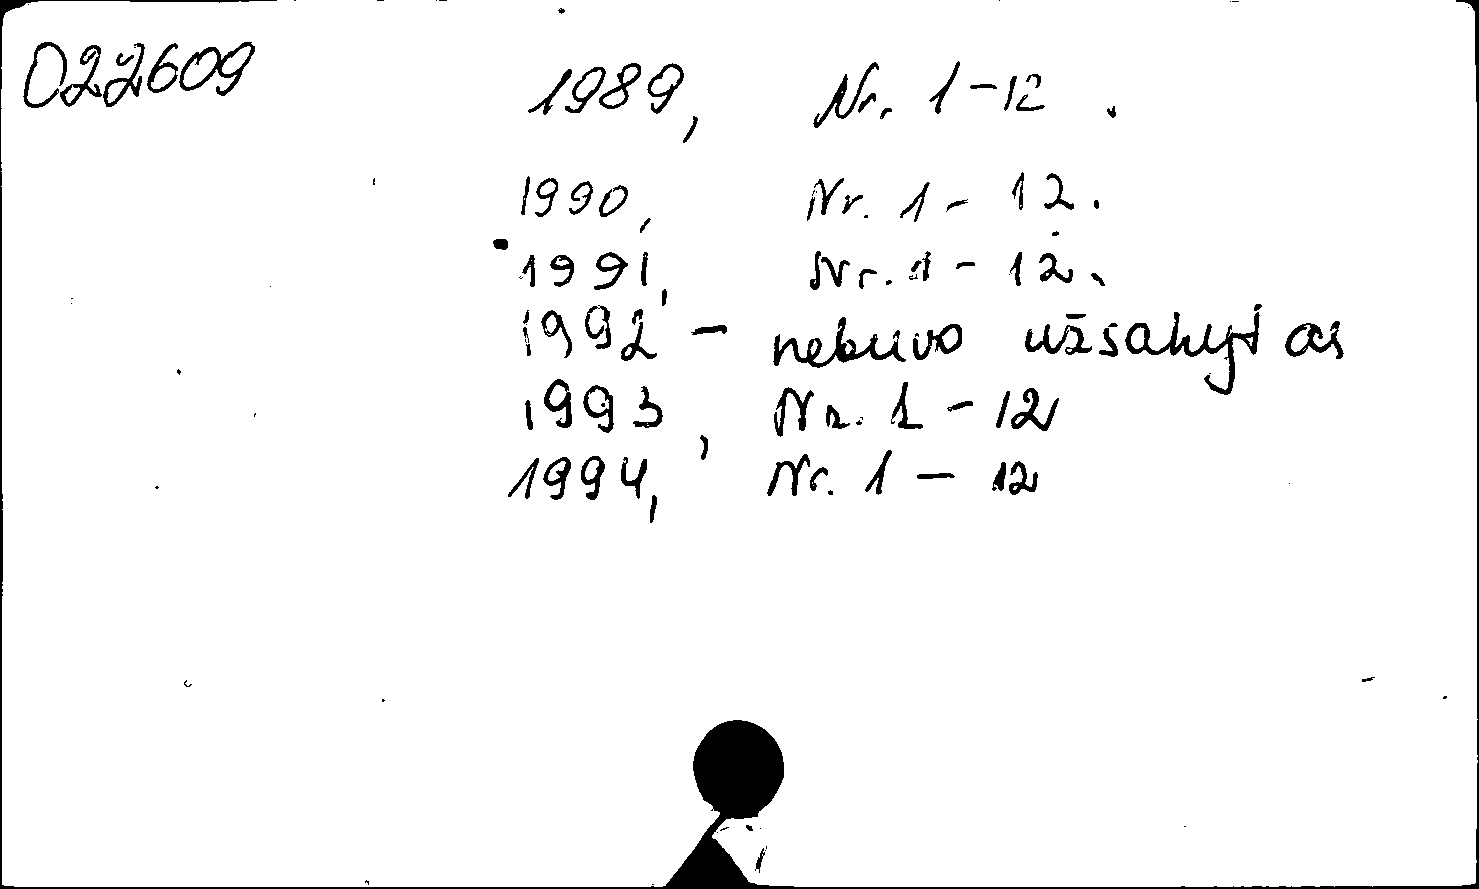 022609
1989, Nr. 1-12.
1990, Nr. 1-12.
1991, Nr. 1-12.
1992 - nebuvo užsakytas
1993, Nr. 1-12
1994, Nr. 1-12